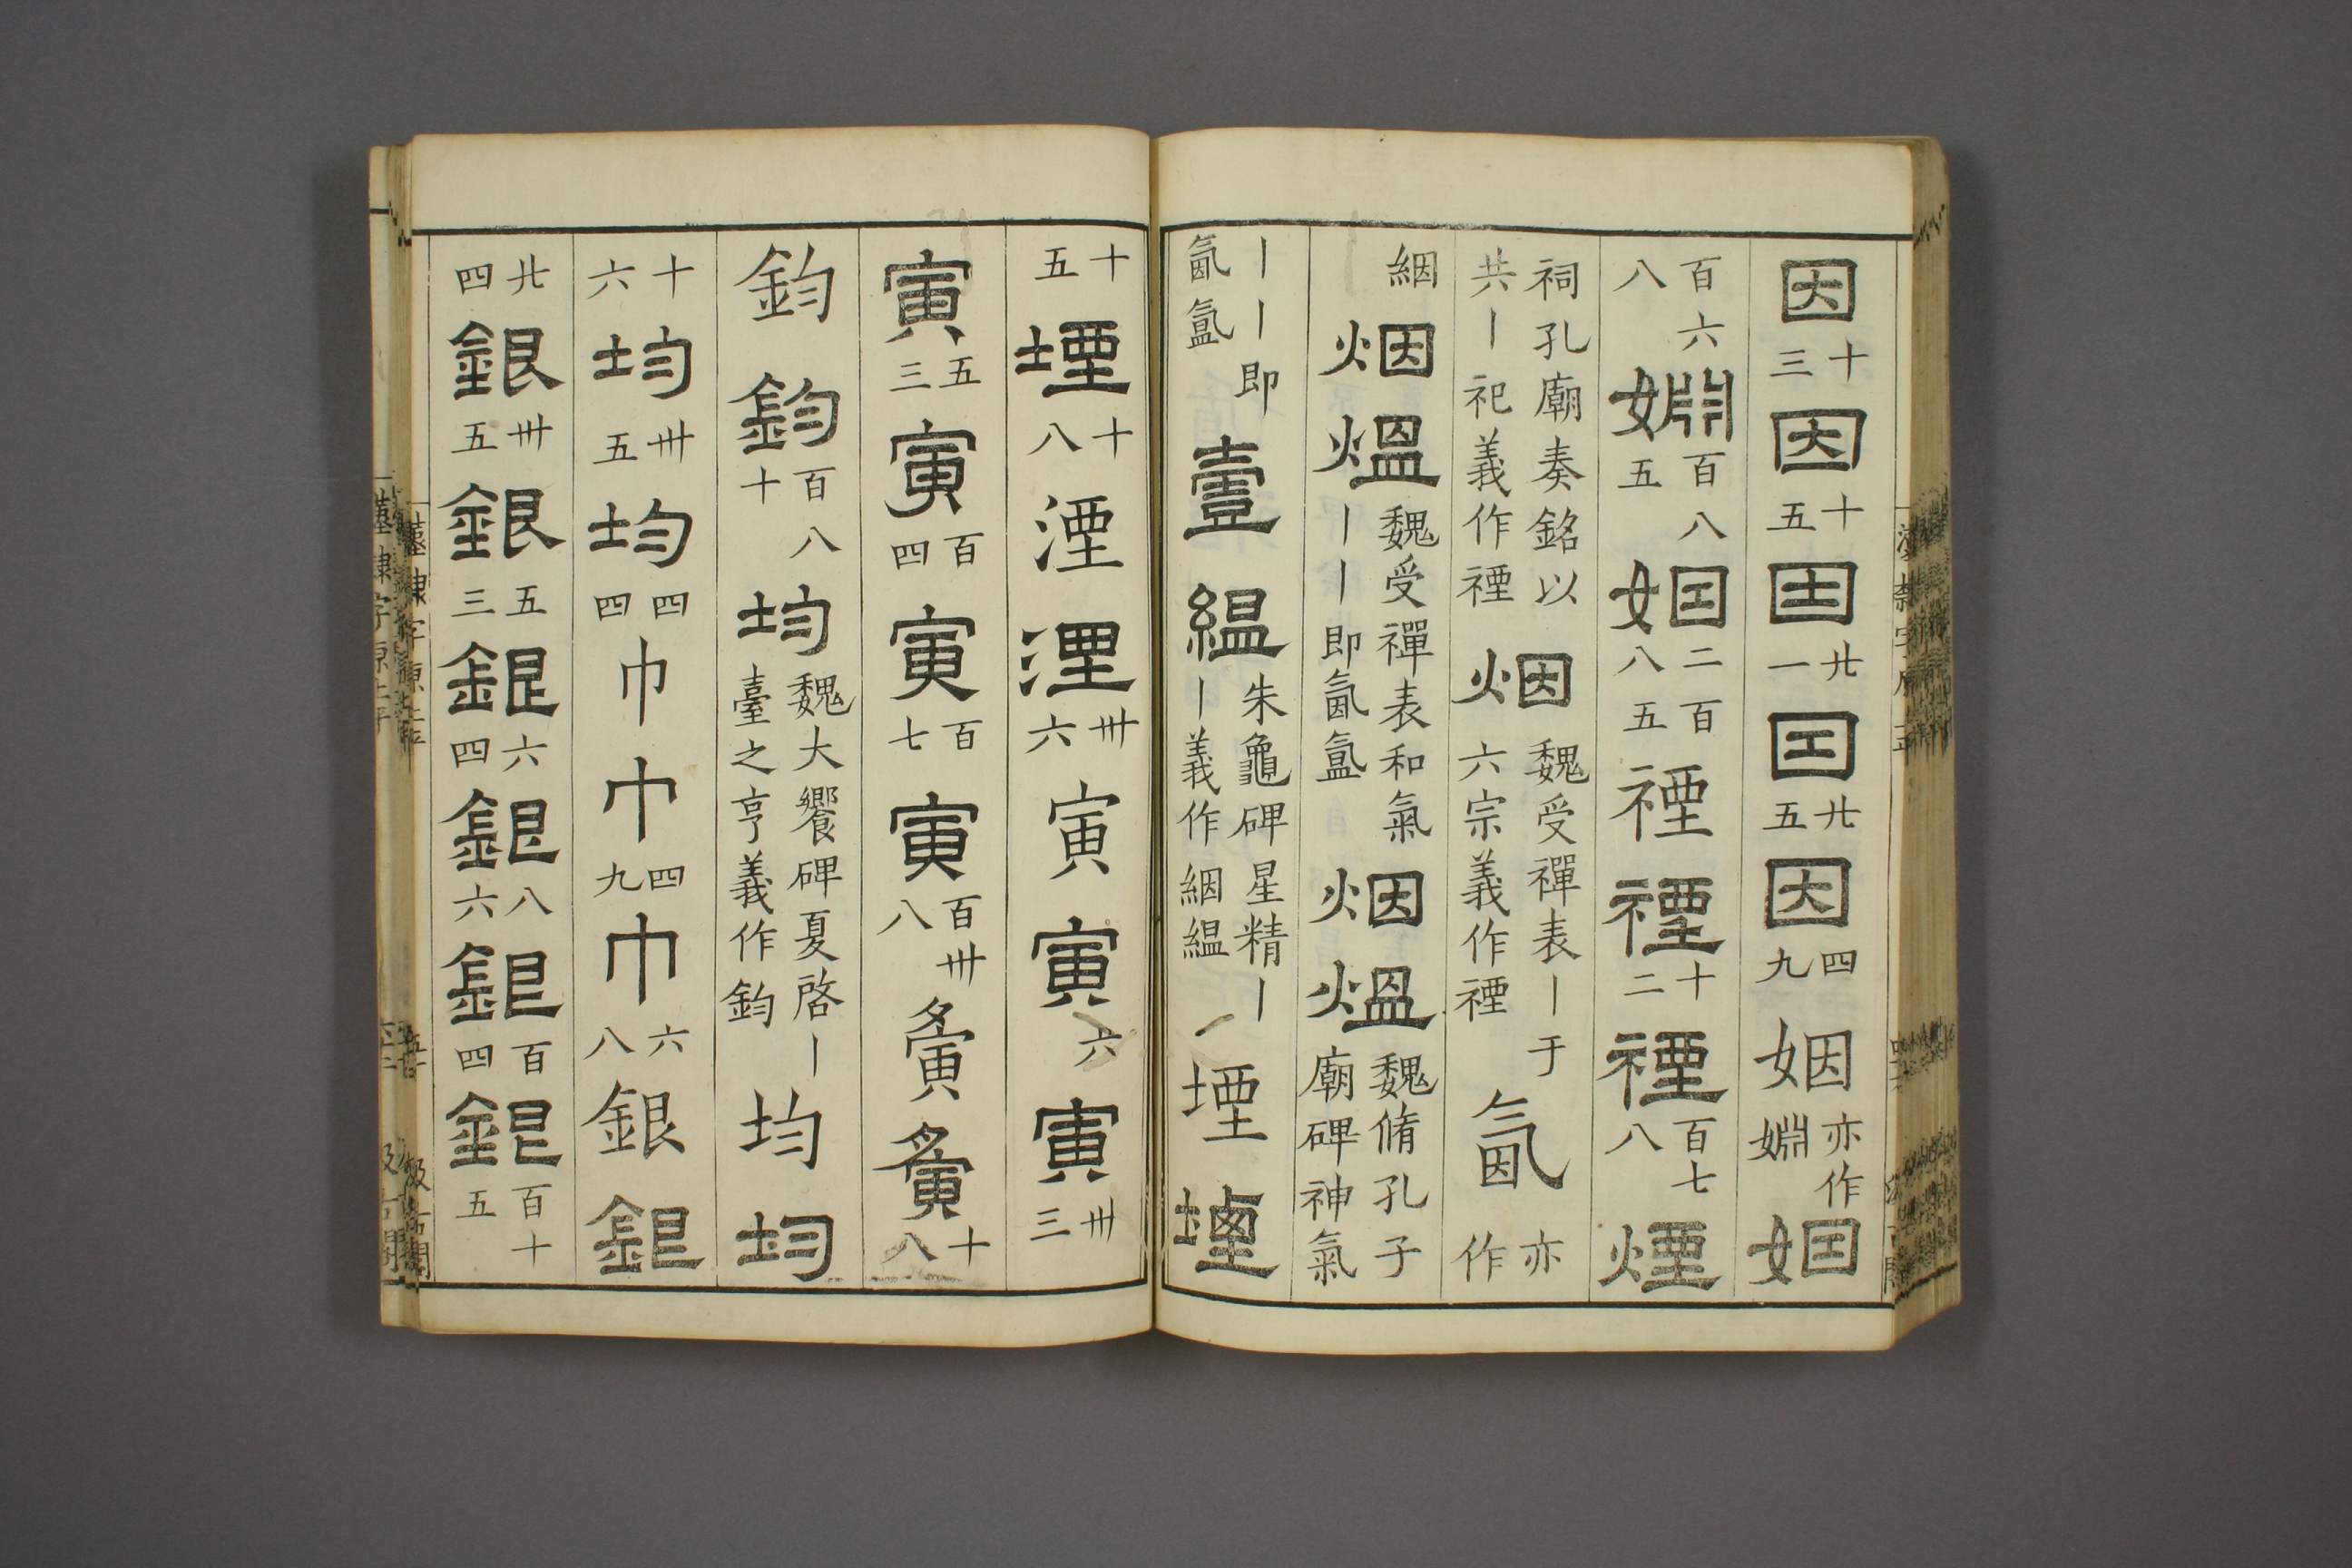 因十三因十五囯廿一囯廿五因四九姻亦作婣姻
百六八婣百八五姻二百八五禋禋十二禋百七八煙
祠孔廟奏銘以共丨祀義作禋烟魏受禪表丨于六宗義作禋氤亦作
絪烟熅魏受禪表和氣丨丨即氤氲烟熅魏脩孔子廟碑神氣
丨丨即氤氲壹緼朱龜碑星精丨丨義作絪緼堙堙
十五堙十八湮湮卅六寅寅六寅卅三
寅五三寅百四寅百七寅百卅八夤夤十八
鈞鈞百八十均魏大饗碑夏啓丨臺之亨義作鈞均均
十六均卅五均四四巾巾四九巾六八銀銀
廿四銀卅五銀五三銀六四銀八六銀百四銀百十五
漢隸字原上平
汲古閣